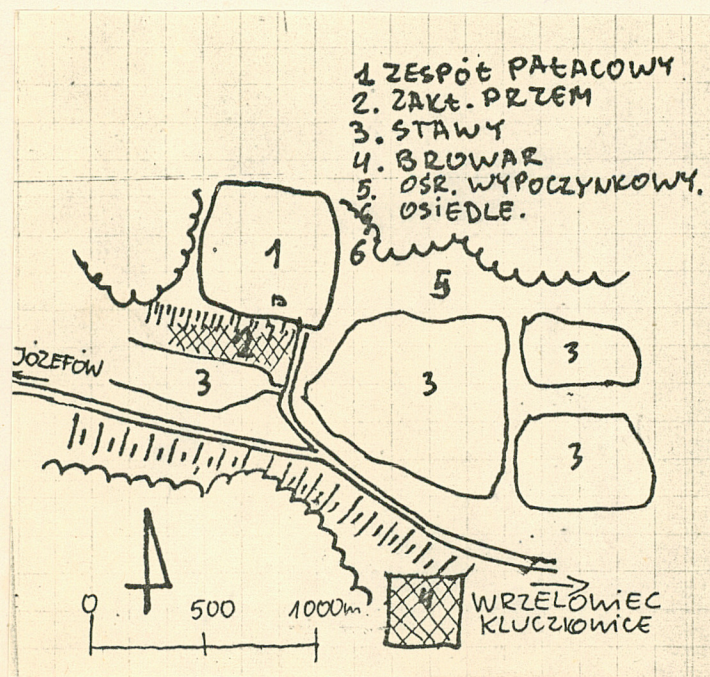 1 ZESPÓŁ PAŁACOWY
2. ZAKŁ. PRZEM
3. STAWY
4. BROWAR
5. OŚR. WYPOCZYNKOWY.
6 OSIEDLE.
1
6
5
2
JÓZEFÓW
3
3
3
3
4
0 500 1000m
WRZELOWIEC
KLUCZKOWICE